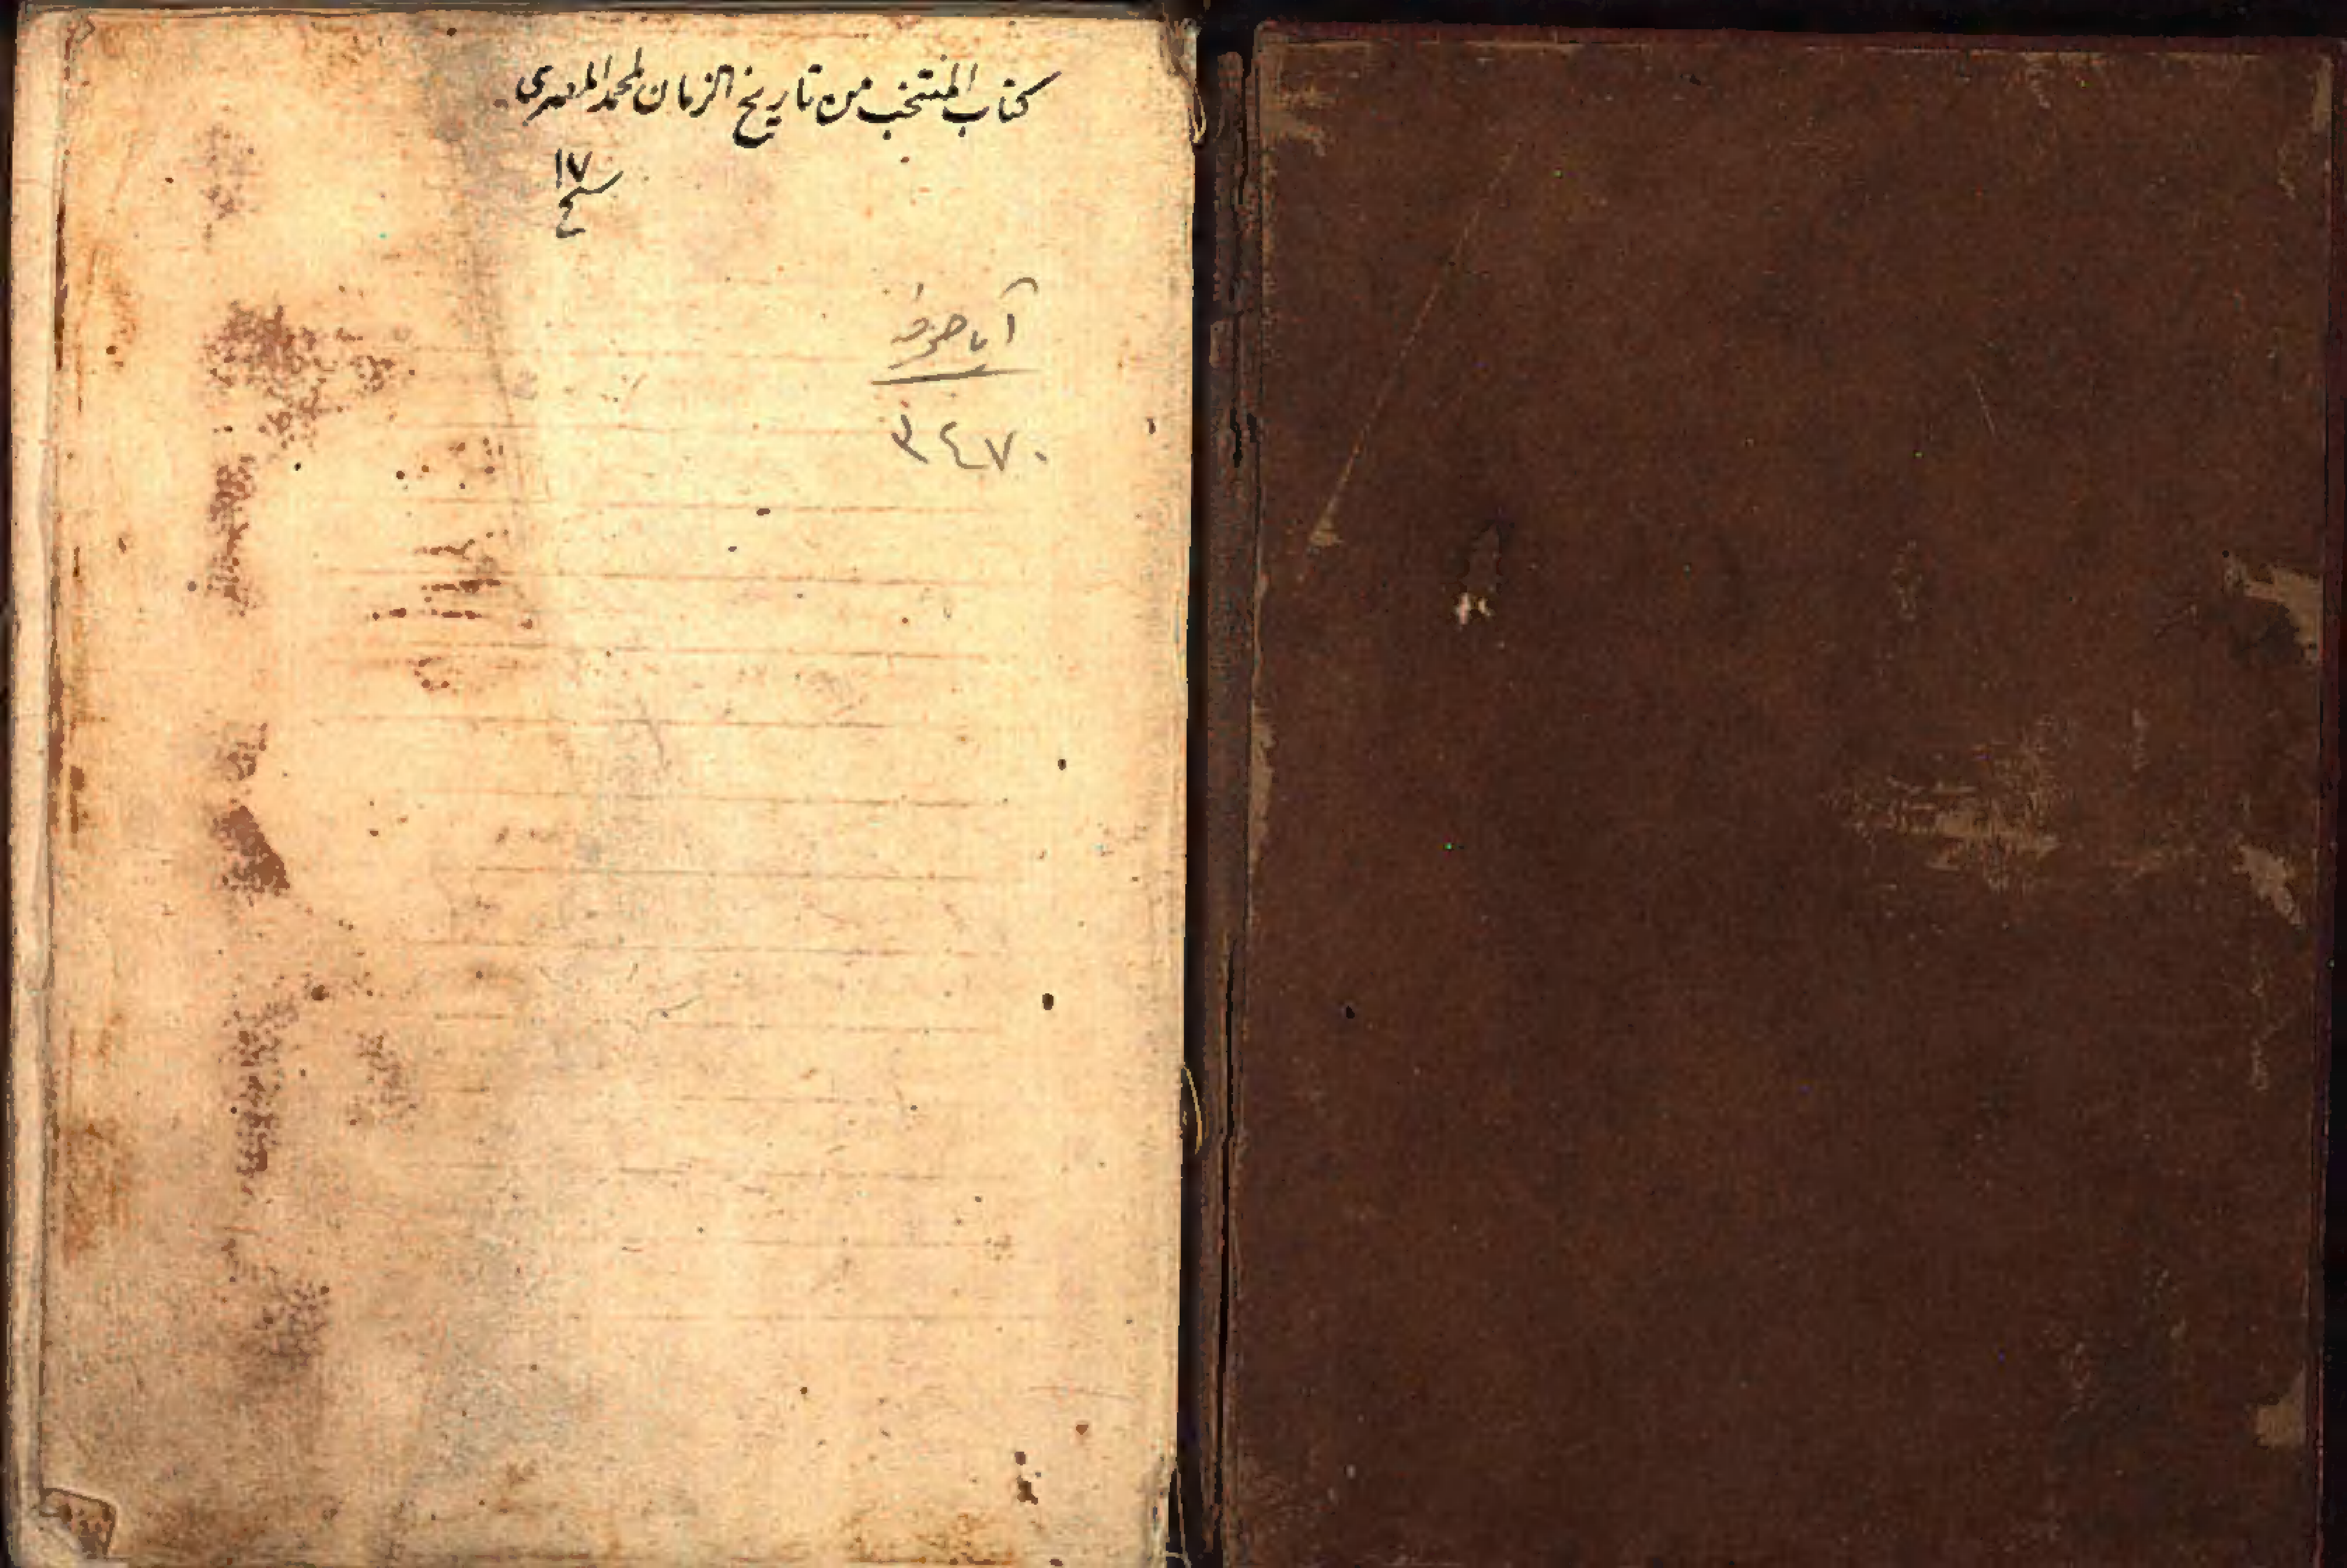 كتاب المنتخب من تاريخ الزمان لمحمد المصرى
١٧
سح
آيا صوفيه
٣٤٧٠